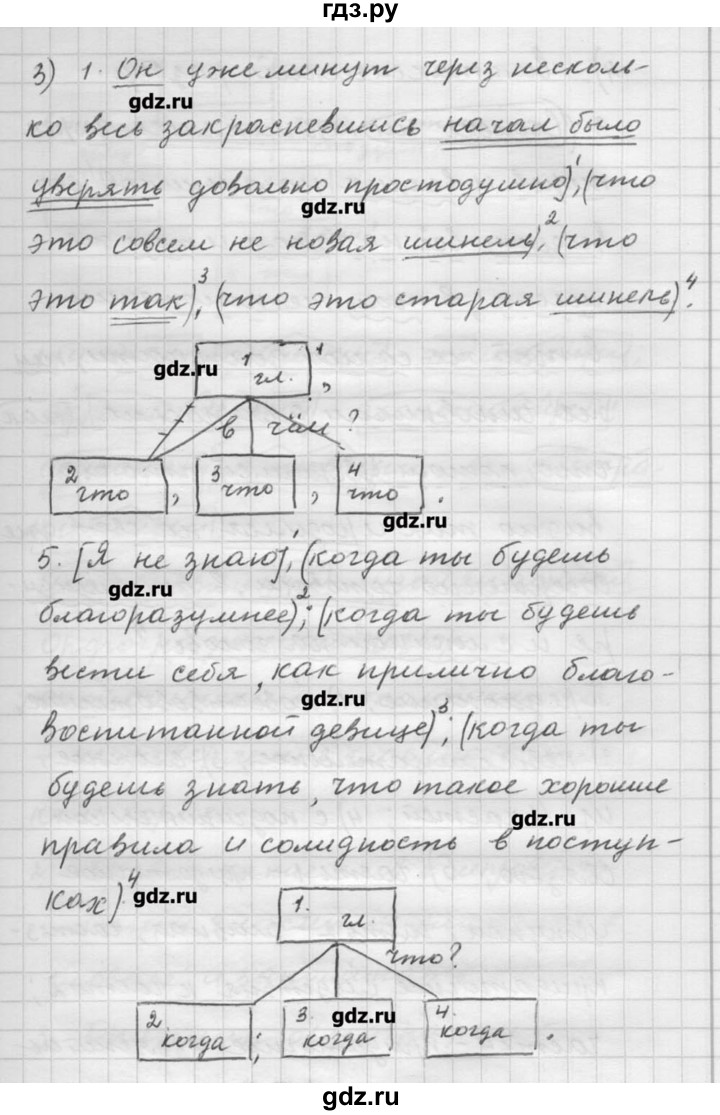 гдз.ру
3) 1. Он уже минут через несколь-
gdz.ru
ко весь закрасневшись начал было
уверять довольно простодушно],¹ (что
gdz.ru
это совсем не новая шинель),² (что
это так),³ (что это старая шинель)⁴.
gdz.ru
1 гл. 1,
в чём?
2 что, 3 что, 4 что.
gdz.ru
5. [Я не знаю],¹ (когда ты будешь
gdz.ru
благоразумнее)²; (когда ты будешь
вести себя, как прилично благо-
gdz.ru
воспитанной девице)³; (когда ты
будешь знать, что такое хорошие
gdz.ru
правила и солидность в поступ-
ках)⁴.
gdz.ru
1. гл.
что?
2. когда; 3. когда 4. когда.
gdz.ru
gdz.ru